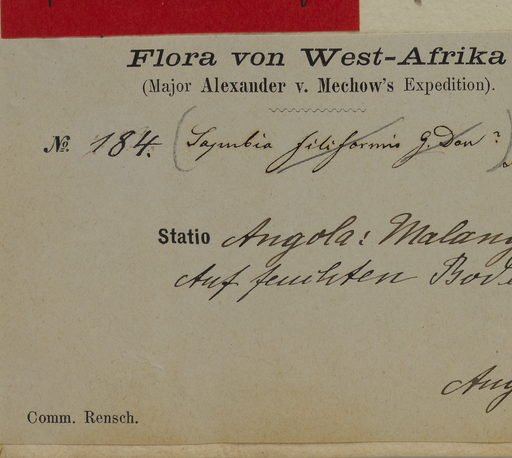 Flora von West-Afrika
(Major Alexander v. Mechow's Expedition).
No. 184. (Sapubia filiformis G. Don ?)
Statio Angola: Malang
Auf feuchten Bode
Aug
Comm. Rensch.